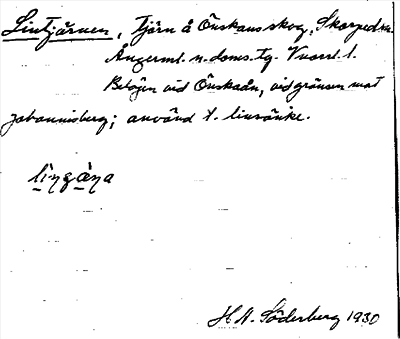 Lintjärnen, Tjärn å Önskans skog, Skorped sn.
Ångerml. n. doms. tg. Vnorrl. l.
Belägen vid Önskaån, vid gränsen mot
Johannisberg; använd t. linsänke.
H.N. Söderberg 1930